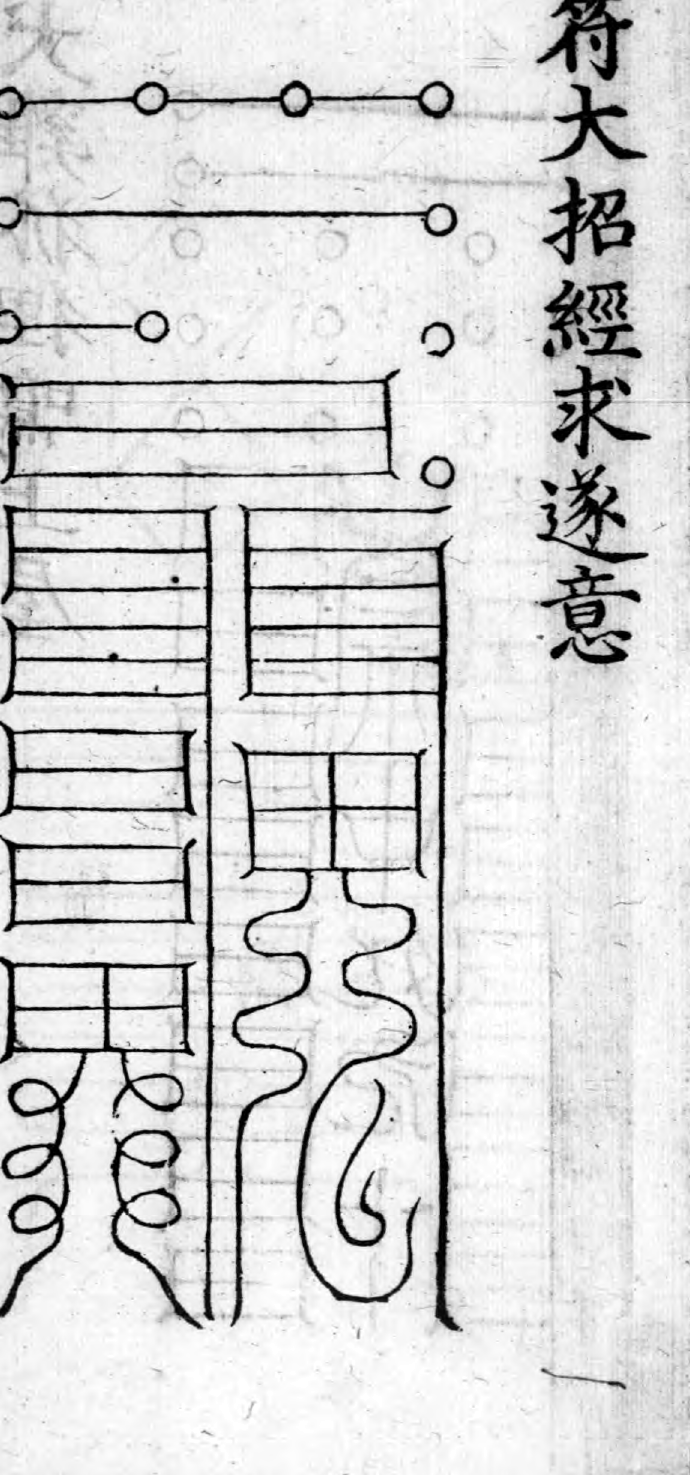 符大招經求遂意